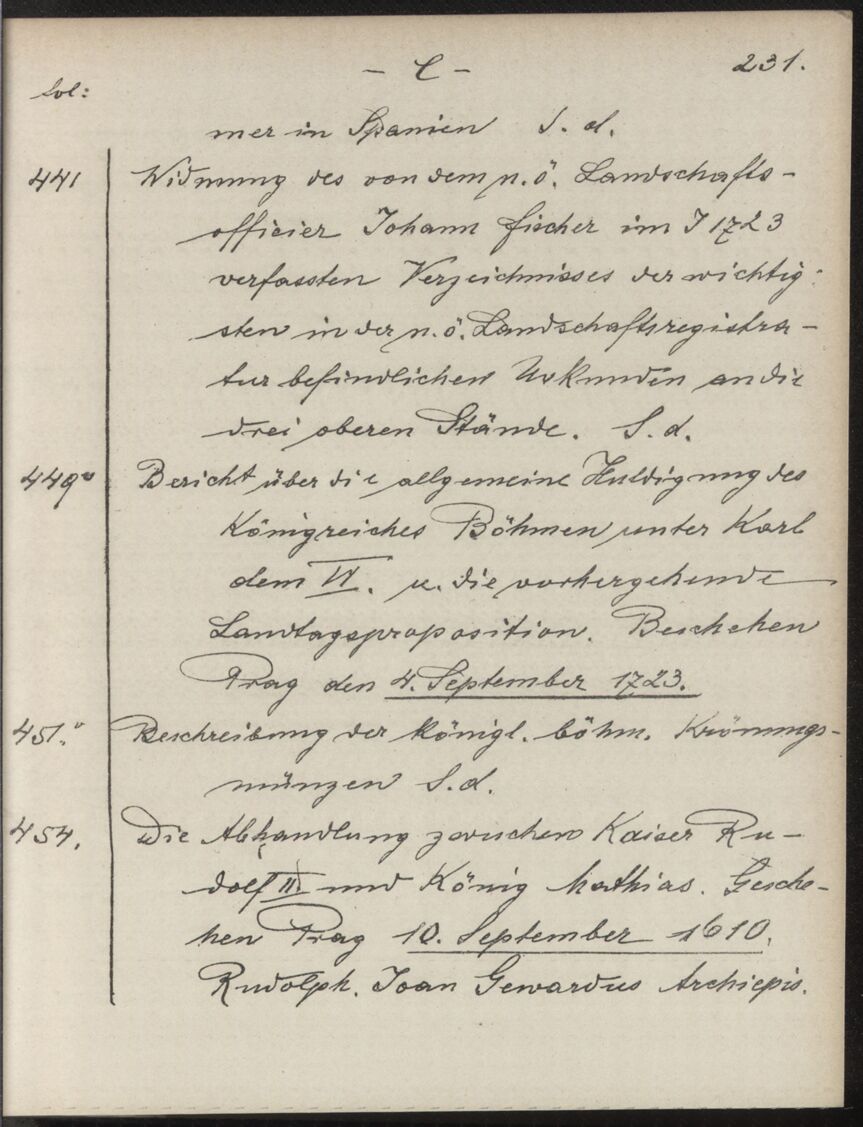 - C - 231.
fol:
mer in Spanien S. d.
441 Widmung des von dem n. ö. Landschafts-
officier Johann Fischer im J 1723
verfassten Verzeichnisses der wichtig-
sten in der n. ö. Landschaftsregistra-
tur befindlichen Urkunden an die
drei oberen Stände. S. d.
449v Bericht über die allgemeine Huldigung des
Königreiches Böhmen unter Karl
dem VI. u. die vorhergehende
Landtagsproposition. Beschehen
Prag den 4. September 1723.
451.v Beschreibung der königl. böhm. Krönungs-
münzen S. d.
454. Die Abhandlung zwischen Kaiser Ru-
dolf II. und König Mathias. Gesche-
hen Prag 10. September 1610.
Rudolph. Joan Gewardus Archiepis.